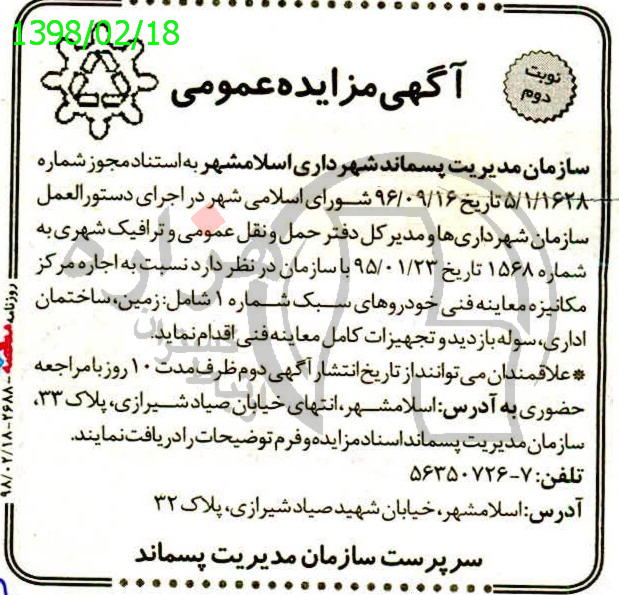 1398/02/18
نوبت
دوم
آگهی مزایده عمومی
سازمان مدیریت پسماند شهرداری اسلامشهر به استناد مجوز شماره
۵/۱/۱۶۲۸ تاریخ ۹۶/۰۹/۱۶ شورای اسلامی شهر در اجرای دستورالعمل
سازمان شهرداری‌ها و مدیر کل دفتر حمل و نقل عمومی و ترافیک شهری به
شماره ۱۵۶۸ تاریخ ۹۵/۰۱/۲۳ با سازمان در نظر دارد نسبت به اجاره مرکز
مکانیزه معاینه فنی خودروهای سبک شماره ۱ شامل: زمین، ساختمان
اداری، سوله بازدید و تجهیزات کامل معاینه فنی اقدام نماید.
*علاقمندان می‌توانند از تاریخ انتشار آگهی دوم ظرف مدت ۱۰ روز با مراجعه
حضوری به آدرس: اسلامشهر، انتهای خیابان صیاد شیرازی، پلاک ۳۳،
سازمان مدیریت پسماند اسناد مزایده و فرم توضیحات را دریافت نمایند.
تلفن: ۷-۵۶۳۵۰۷۲۶
آدرس: اسلامشهر، خیابان شهید صیاد شیرازی، پلاک ۳۲
سرپرست سازمان مدیریت پسماند
روزنامه مناقصه - ۲۶۸۸ - ۹۸/۰۲/۱۸
هزاره